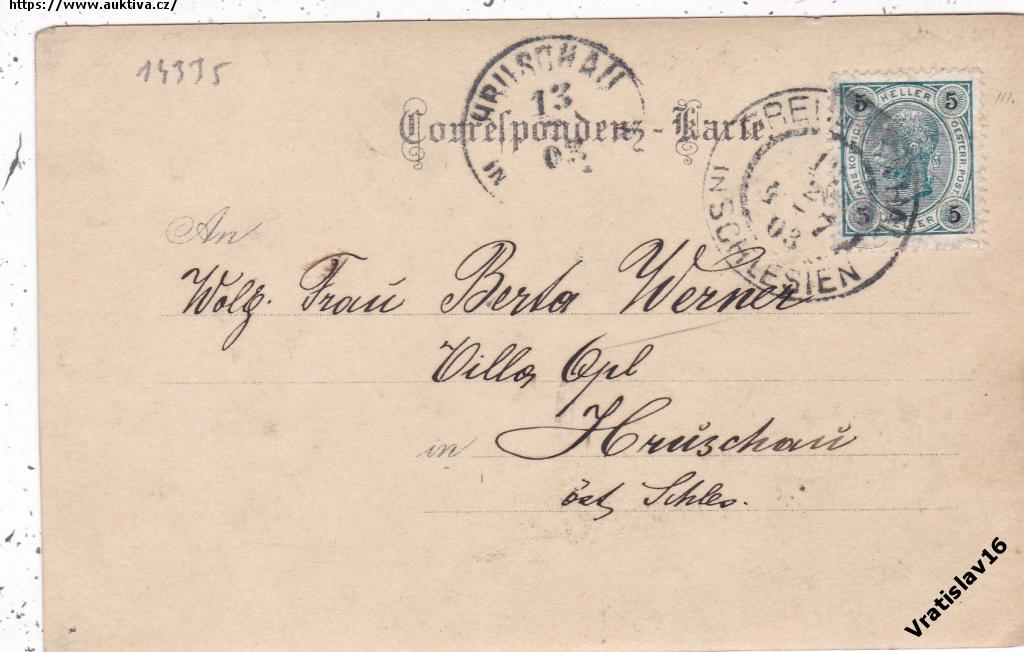 https://www.auktiva.cz/
14335
HRUSCHAU
13
03
Correspondenz-Karte.
IN SCHLESIEN
03
5 HELLER 5
OESTERR. POST
5 5
An
Wolg. Frau Berta Werner
Villa Opl
in Hruschau
öst. Schles.
Vratislav16